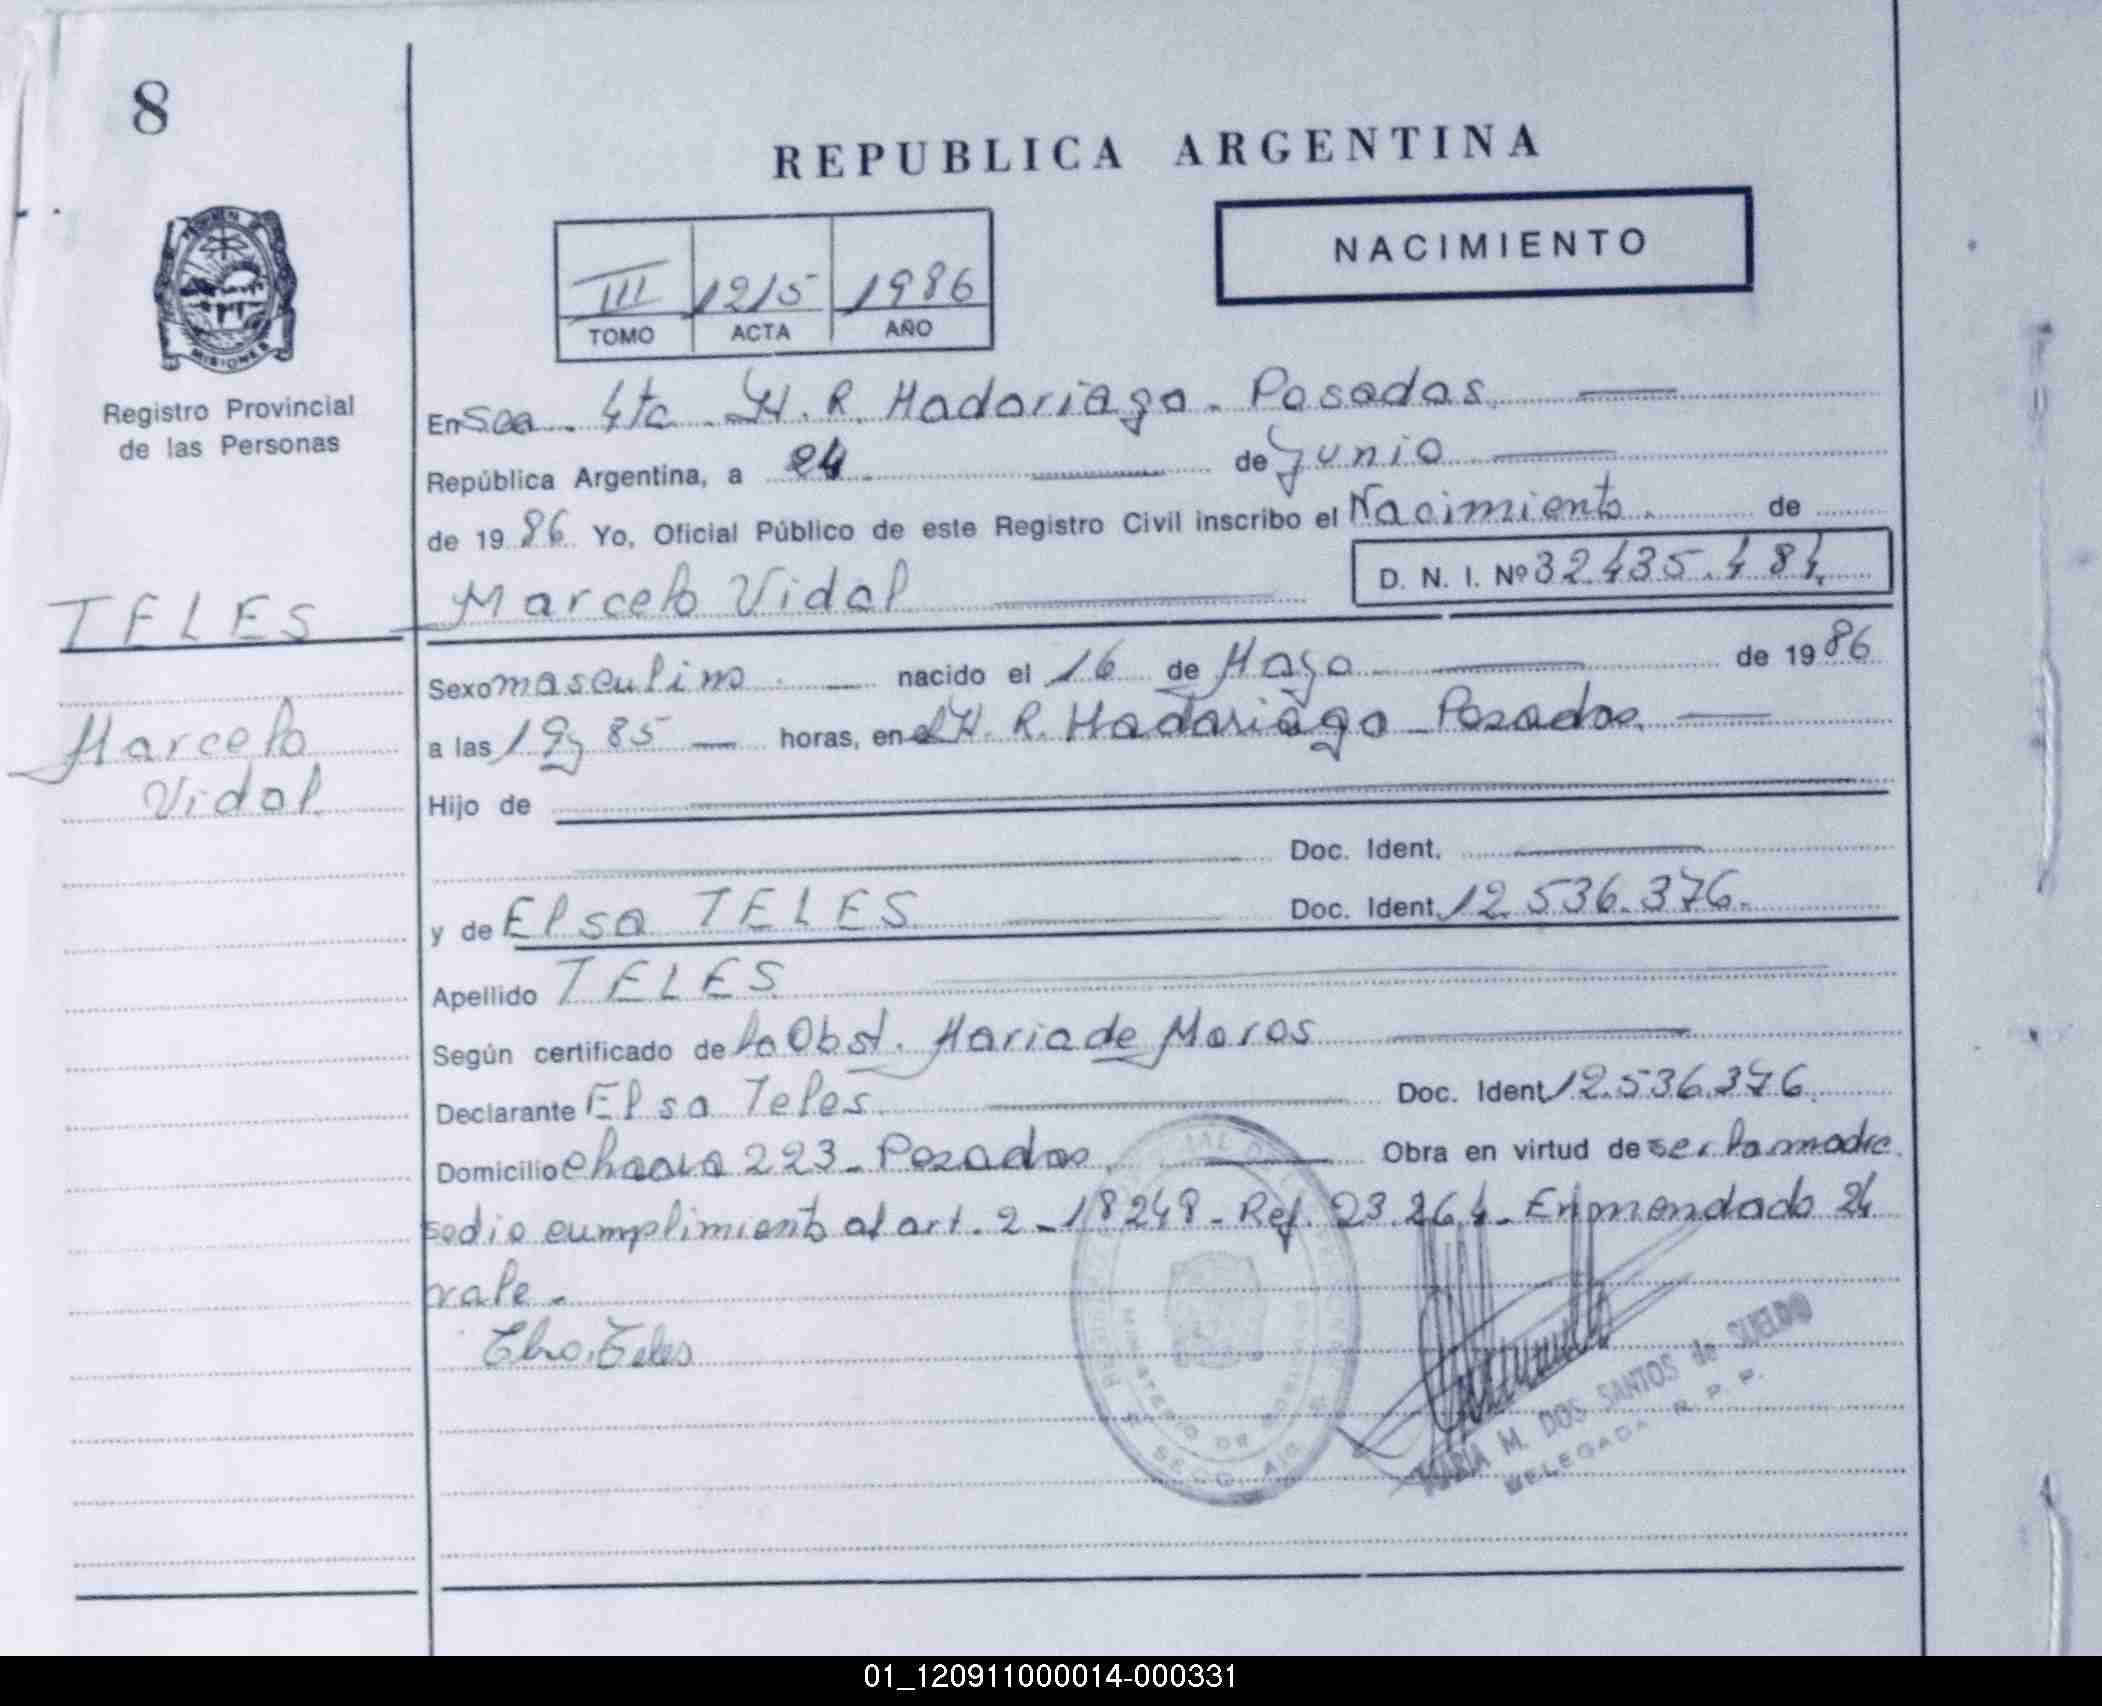 8
REPUBLICA ARGENTINA
NACIMIENTO
III 1215 1986
TOMO ACTA AÑO
MISIONES
Registro Provincial
de las Personas
En Sec. 4ta H. R. Madariaga - Posadas.
República Argentina, a 24 de Junio
de 1986 Yo, Oficial Público de este Registro Civil inscribo el Nacimiento. de
Marcelo Vidal D. N. I. Nº 32.435.484
TELES
Marcelo
Vidal.
Sexo masculino nacido el 16 de Mayo de 1986
a las 19, 85 horas, en el H. R. Madariaga - Posadas.
Hijo de
Doc. Ident.
y de Elsa TELES Doc. Ident. 12.536.376.
Apellido TELES
Según certificado de la Obst. Maria de Moros
Declarante Elsa Teles Doc. Ident. 12.536.376.
Domicilio chacra 223 - Posadas. Obra en virtud de ser la madre.
se dio cumplimiento al art. 2 - 18248 - Ref. 23.264 - Enmendado 24
vale.-
Elsa Teles
MINISTERIO DE
MARIA M. DOS SANTOS de SUELDO
DELEGADA R. P. P.
01_120911000014-000331